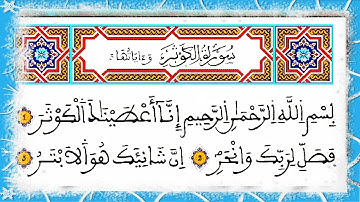 سورة الكوثر وءاياتها
بسم الله الرحمن الرحيم إنا أعطينك الكوثر
فصل لربك وانحر إن شانئك هو الأبتر